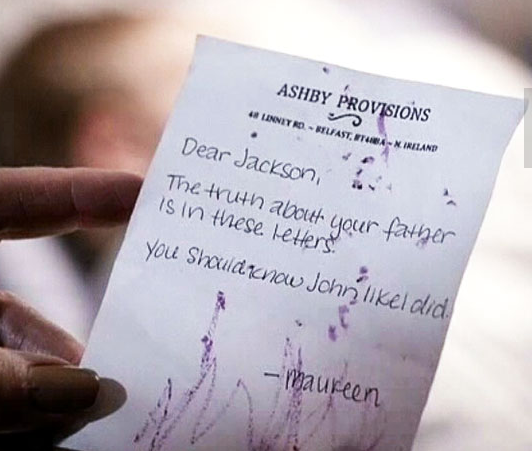 ASHBY PROVISIONS
48 LINNET RD. ~ BELFAST, BT48BA ~ N. IRELAND
Dear Jackson,
The truth about your father
is in these letters.
You should know John like I did.
- maureen